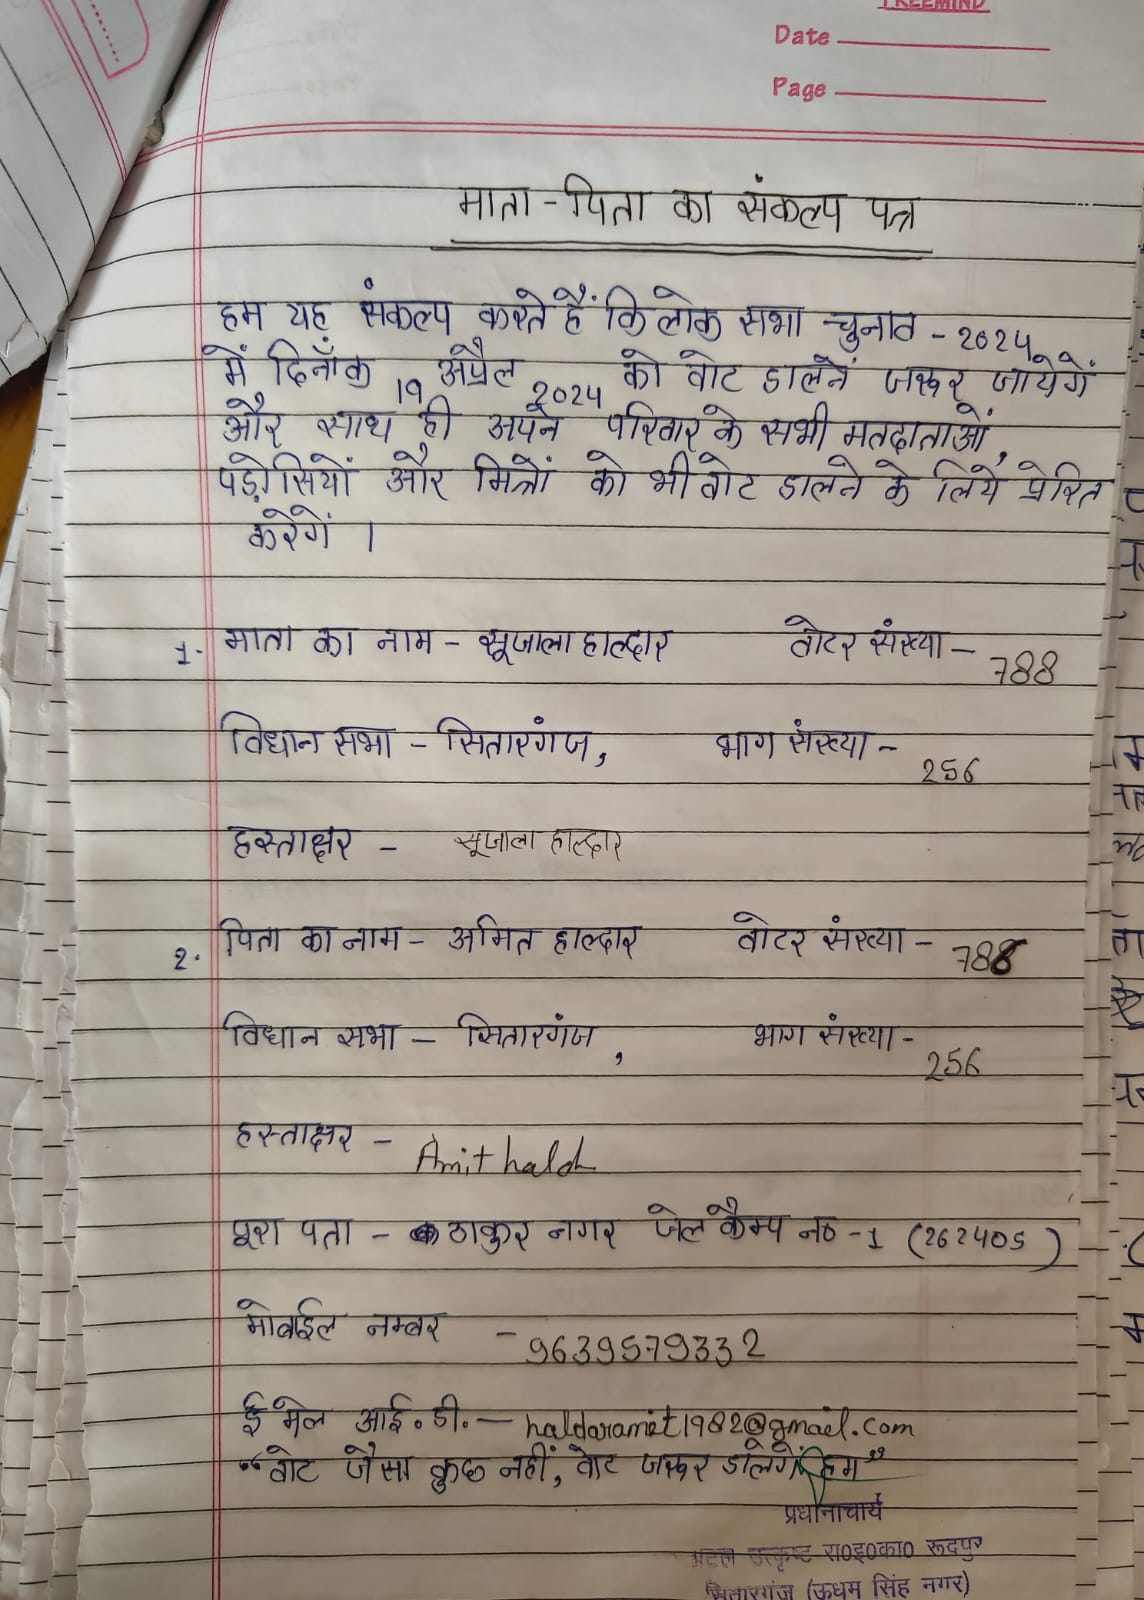 TREEMIND
Date
Page
माता - पिता का संकल्प पत्र
हम यह संकल्प करते हैं कि लोक सभा चुनाव - 2024
में दिनाँक 19 अप्रैल 2024 को वोट डालनें जरूर जायेगें
और साथ ही अपने परिवार के सभी मतदाताओं,
पड़ोसियों और मित्रों को भी वोट डालने के लिये प्रेरित
करेगें ।
1. माता का नाम - सूजाला हाल्दार वोटर संख्या - 788
विधान सभा - सितारगंज, भाग संख्या - 256
हस्ताक्षर - सूजाला हाल्दार
2. पिता का नाम - अमित हाल्दार वोटर संख्या - 788
विधान सभा - सितारगंज, भाग संख्या - 256
हस्ताक्षर - Amit hald
पूरा पता - ठाकुर नगर जेल कैम्प न० - 1 (262405)
मोबाईल नम्बर - 9639579332
ई मेल आई. डी. - haldaramit1982@gmail.com
"वोट जैसा कुछ नहीं, वोट जरूर डालेगें हम"
प्रधानाचार्य
अटल उत्कृष्ट रा०इ०का० रूदपुर
सितारगंज (ऊधम सिंह नगर)